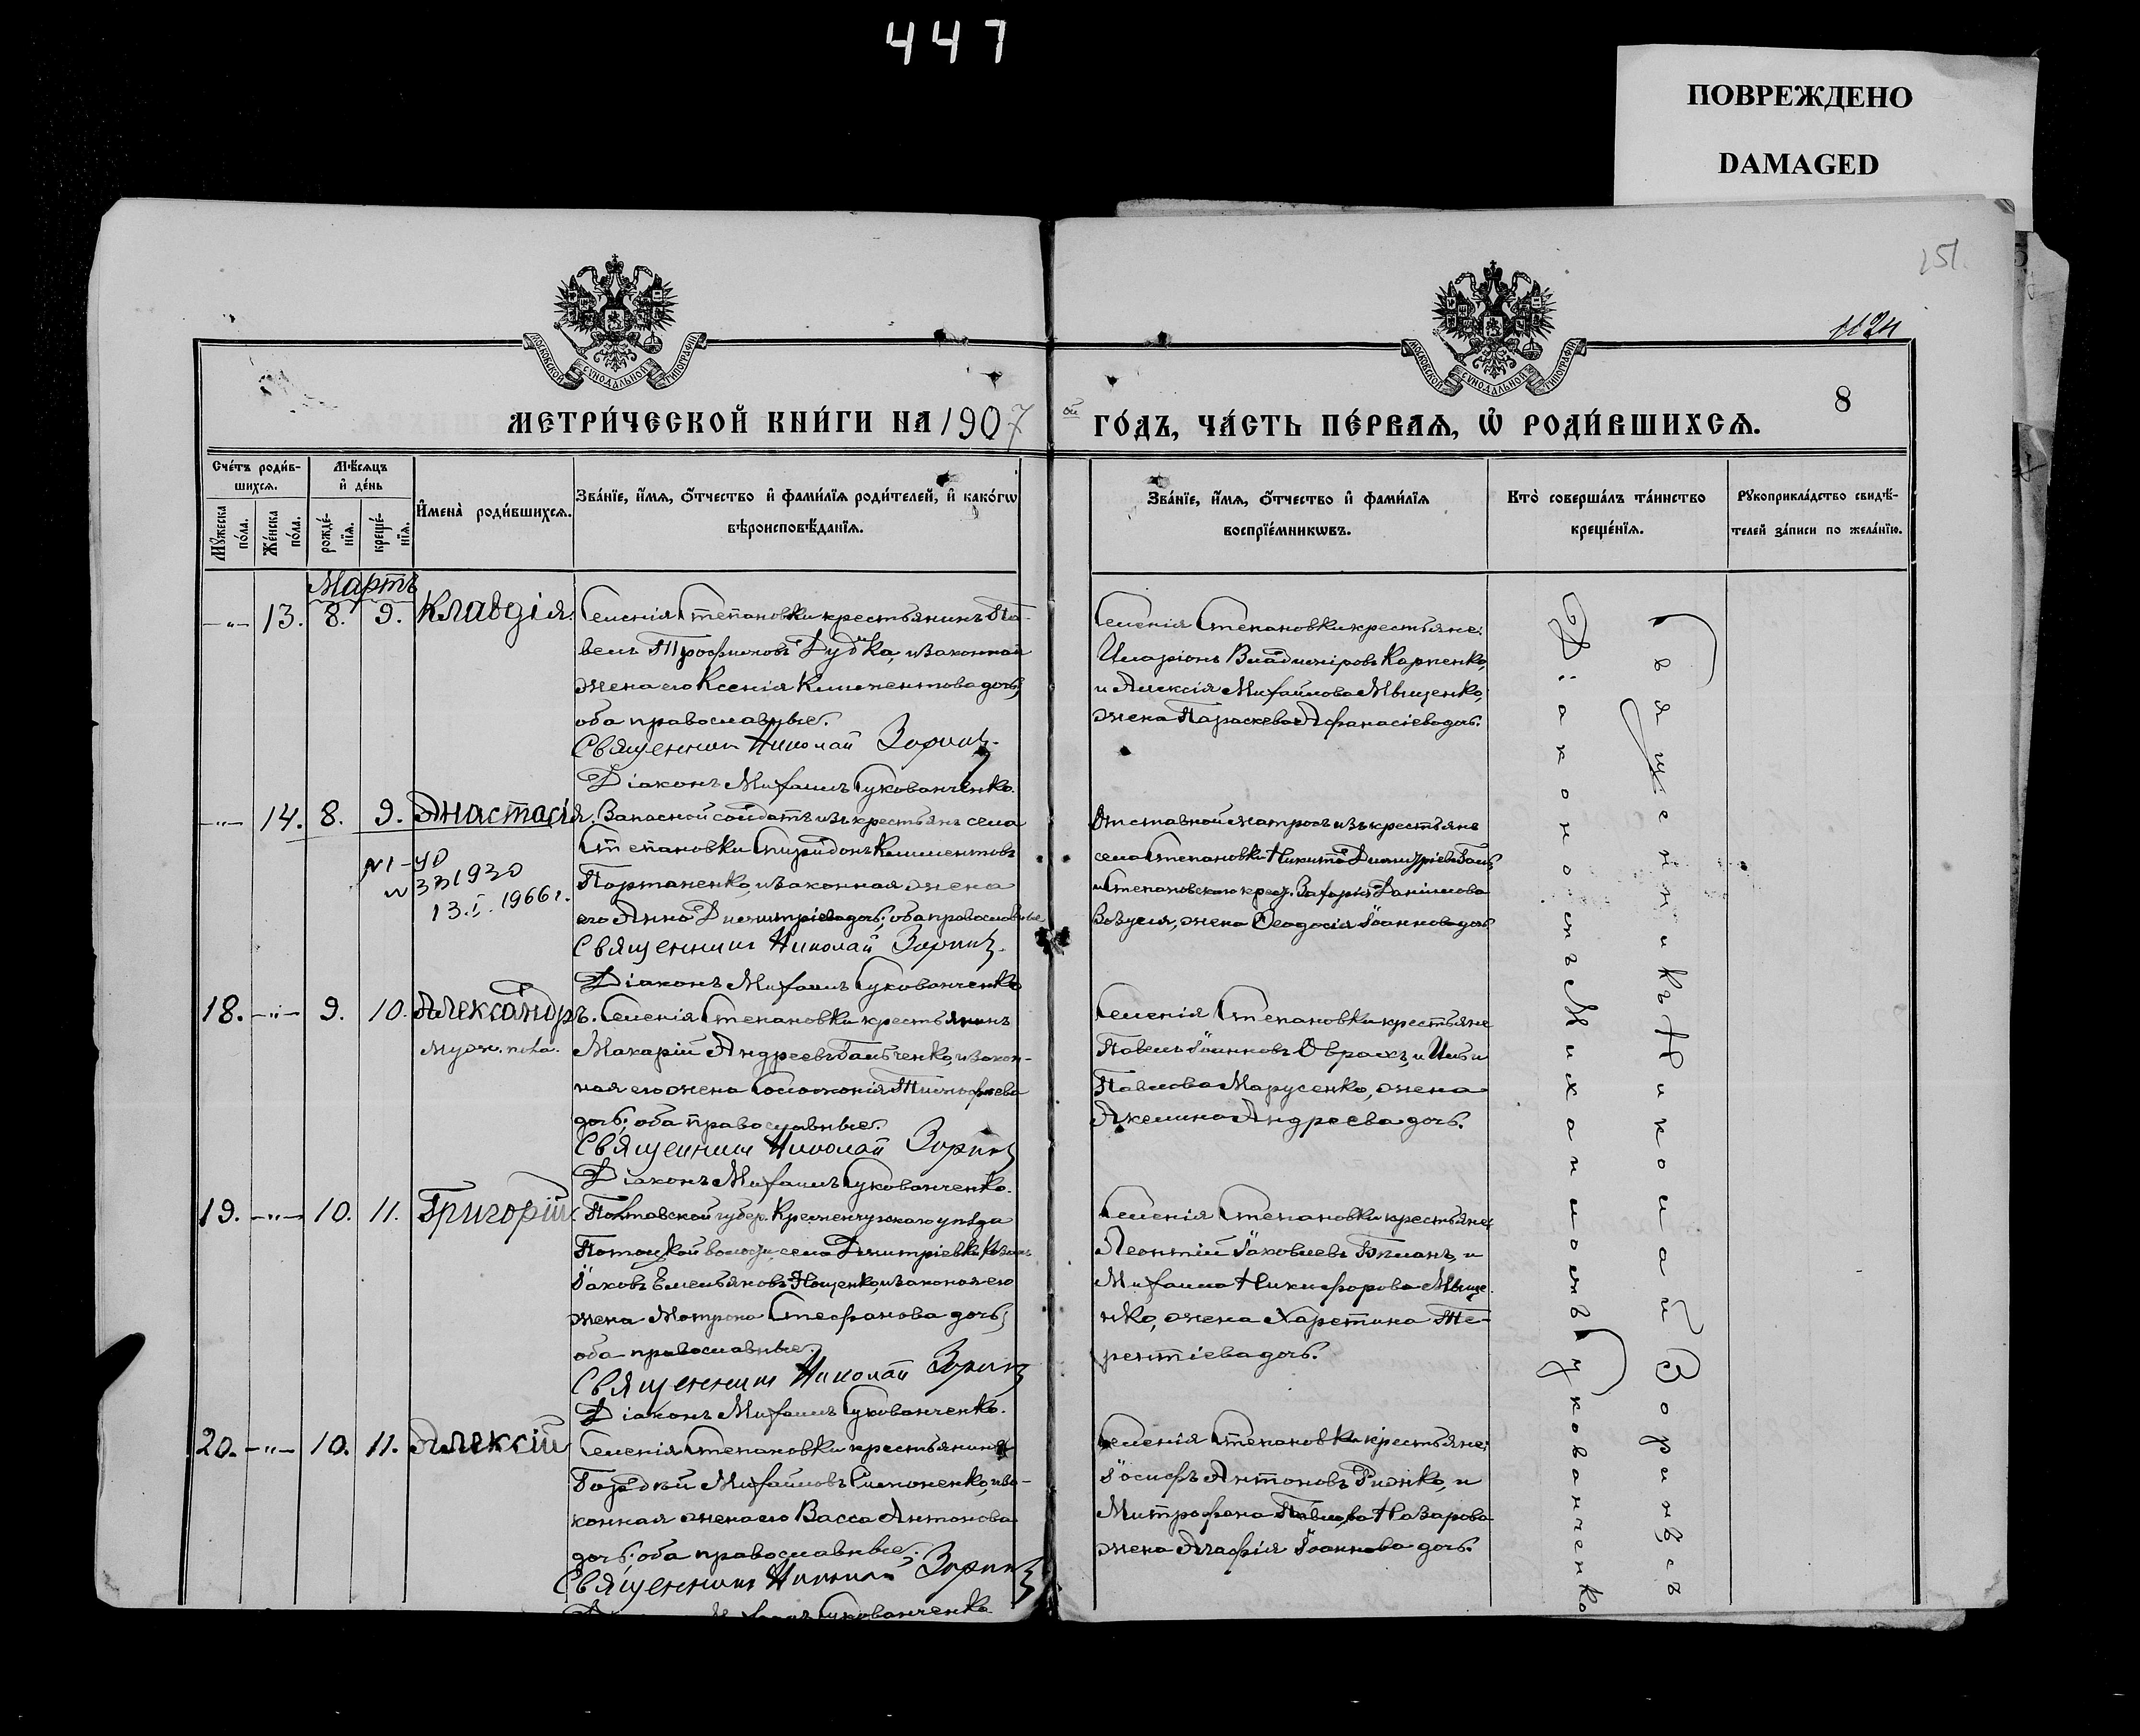 447
ПОВРЕЖДЕНО
DAMAGED
151.
1124
8
МОСКОВСКОЙ СѴНОДАЛЬНОЙ ТИПОГРАФІИ
МОСКОВСКОЙ СѴНОДАЛЬНОЙ ТИПОГРАФІИ
МЕТРИ́ЧЕСКОЙ КНИ́ГИ НА 1907 ой ГО́ДЪ, ЧА́СТЬ ПЕ́РВАѦ, Ѡ҆ РОДИ́ВШИХСѦ.
Сче́тъ роди́в-
шихсѧ.
Мꙋ́жеска
по́ла.
Же́нска
по́ла.
Мѣ́сѧцъ
и҆ де́нь
рожде́-
нїѧ.
креще́-
нїѧ.
И҆мена̀ роди́вшихсѧ.
Зва́нїе, и҆́мѧ, ѻ҆́тчество и҆ фамѝлїѧ роди́телей, и҆ како́гѡ
вѣроисповѣ́данїѧ.
Зва́нїе, и҆́мѧ, ѻ҆́тчество и҆ фамѝлїѧ
воспрїе́мникѡвъ.
Кто̀ соверша́лъ та́инство
креще́нїѧ.
Рꙋкоприкла́дство свидѣ́-
телей за́писи по жела́нїю.
Мартъ
-"- 13. 8. 9. Клавдія.
Селенія Степановки крестьянинъ Па-
велъ Трофимовъ Дудка, и законная
жена его Ксенія Климентова дочь;
оба православные.
Священникъ Николай Зоринъ.
Діаконъ Михаилъ Сукованченко.
Селенія Степановки крестьяне:
Иларіонъ Владиміровъ Карпенко,
и Алексія Михайлова Мыщенко,
жена Параскева Афанасіева дочь.
-"- 14. 8. 9. Анастасія.
13.I.1966г.
Запасной солдатъ изъ крестьянъ села
Степановки Спиридонъ Климентовъ
Портаненко, и законная жена
его Анна Димитріева дочь; оба православные
Священникъ Николай Зоринъ.
Діаконъ Михаилъ Сукованченко
Отставной матросъ изъ крестьянъ
села Степановки Никита Димитріевъ
и Степановскаго крест. Захарія Даніилова
жена Ѳеодосія Іоаннова дочь.
18. -"- 9. 10. Александръ.
муж. пола.
Селенія Степановки крестьянинъ
Макарій Андреевъ Гальченко, и закон-
ная его жена Соломонія Тимофеева
дочь; оба православные.
Священникъ Николай Зоринъ
Діаконъ Михаилъ Сукованченко.
Селенія Степановки крестьяне
Павелъ Іоанновъ Оврахъ, и Ильи
Павлова Марусенко, жена
Акелина Андреева дочь.
19. -"- 10. 11. Григорій.
Полтавской губер. Кременчужскаго уѣзда
Потоцкой волости села Димитріевки
Іаковъ Емельяновъ и законная его
жена Матрона Стефанова дочь;
оба православные.
Священникъ Николай Зоринъ
Діаконъ Михаилъ Сукованченко.
Селенія Степановки крестьяне:
Леонтій Іаковлевъ и
Михаила Никифорова Мыще-
нко, жена Харетина Те-
рентіева дочь.
20. -"- 10. 11. Алексій
Селенія Степановки крестьянинъ
Гордѣй Михайловъ Симоненко, и за-
конная жена его Васса Антонова
дочь; оба православные.
Священникъ Николай Зоринъ
Діаконъ Михаилъ Сукованченко
Селенія Степановки крестьяне:
Іосифъ Антоновъ Рижко, и
Митрофана Павлова Назарова
жена Агафія Іоаннова дочь.
Священникъ Николай Зоринъ съ
Діакономъ Михаиломъ Сукованченко